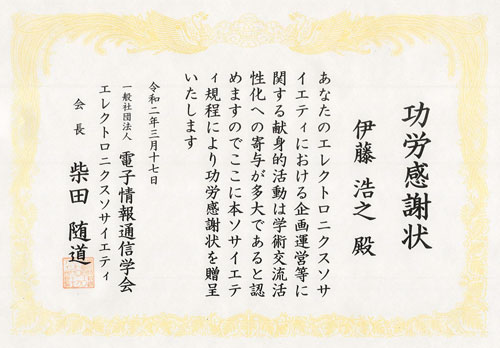 功労感謝状
伊藤 浩之 殿
あなたのエレクトロニクスソサ
イエティにおける企画運営等に
関する献身的活動は学術交流活
性化への寄与が多大であると認
めますのでここに本ソサイエテ
ィ規程により功労感謝状を贈呈
いたします
令和二年三月十七日
一般社団法人 電子情報通信学会
エレクトロニクスソサイエティ
会長 柴田 随道